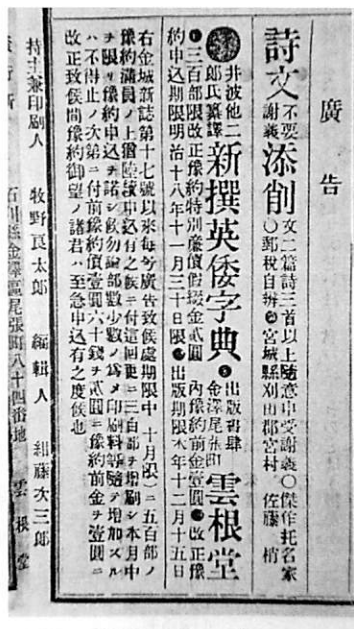 廣告
詩文 不要謝義 添削 文二篇詩三首以上隨意申受謝義〇傑作托名家
〇郵税自辨 宮城縣刈田郡宮村 佐藤 梢
井波他二郎氏纂譯 新撰英倭字典 出版書肆 金澤尾張町 雲根堂
三百部限改正豫約特別廉價假綴金貳圓 內豫約前金壹圓 改正豫
約申込期限明治十八年十一月三十日限 出版期限本年十二月十五日
右金城新誌第十七號以來每号廣告致候處期限中(十月限)ニ五百部ノ
豫約滿員ノ上猶陸續申込有之候ニ付這回更ニ三百部ヲ增刷シ本月中
ヲ限リ豫約申込ヲ諾シ候勿論部數少數ノ爲メ印刷料等隨テ增加スル
ハ不得止ノ次第ニ付前豫約價壹圓六十錢ヲ貳圓ニ豫約前金ヲ壹圓ニ
改正致候間豫約御望ノ諸君ハ至急申込有之度候也
持主兼印刷人 牧野良太郎 編輯人 紺藤次三郎
石川縣金澤區尾張町八十四番地 雲根堂